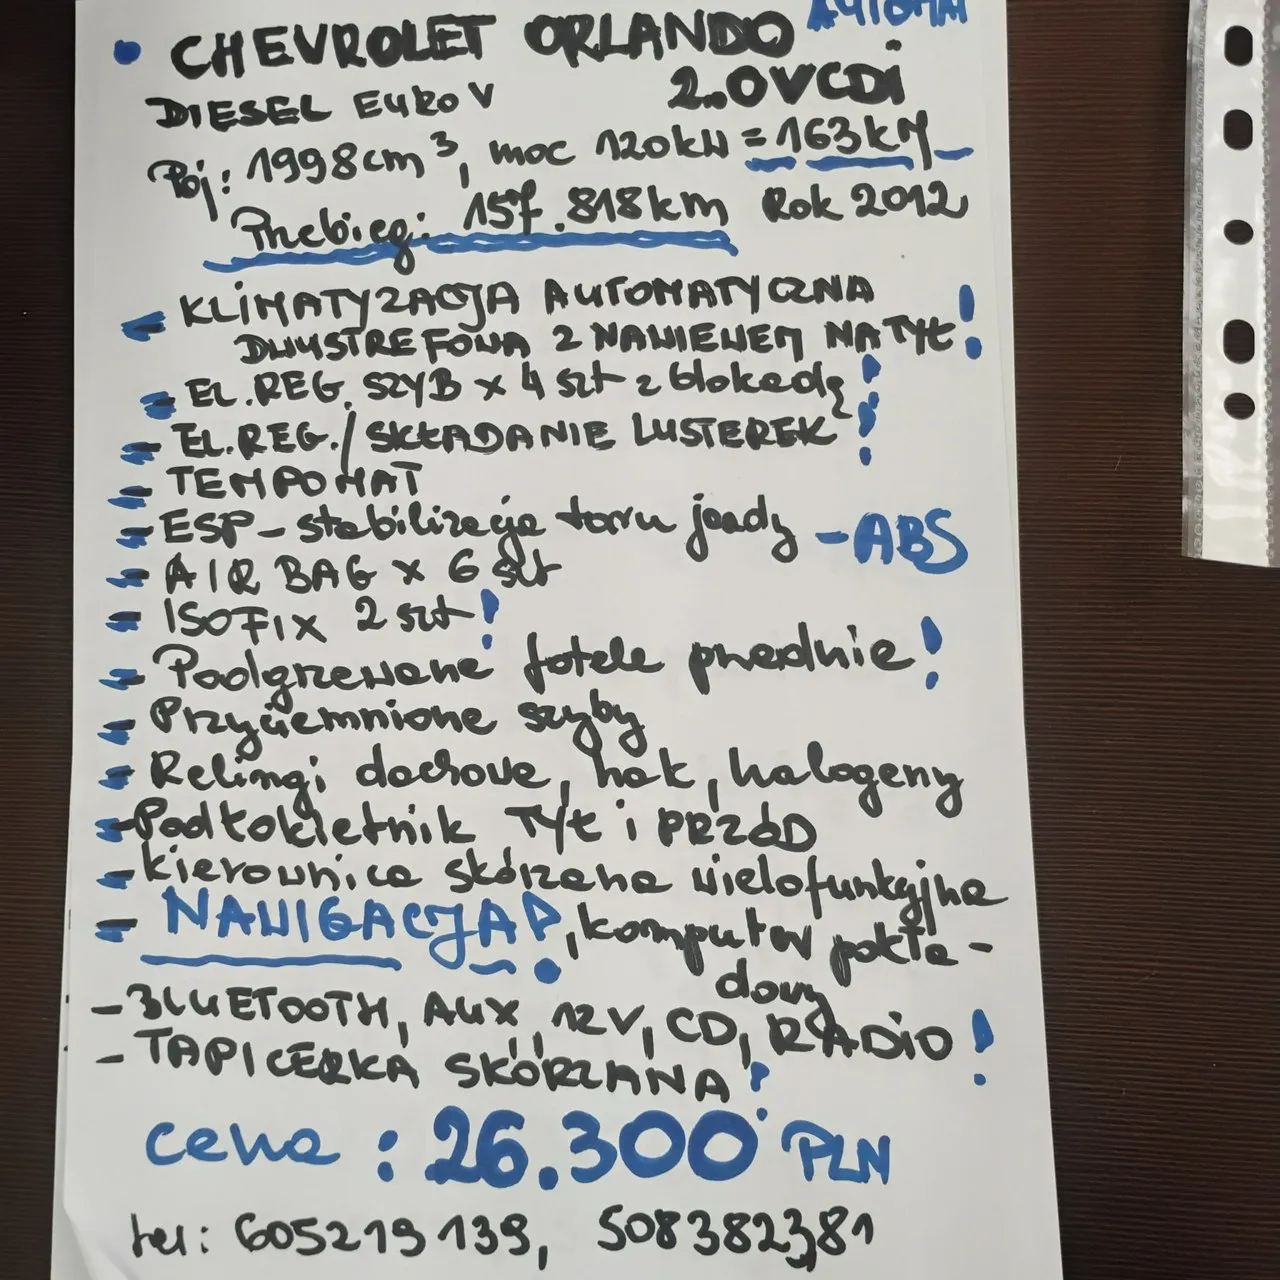 AUTOMAT
• CHEVROLET ORLANDO
DIESEL EURO V 2.0VCDi
Poj: 1998cm³, moc 120kW = 163kM
Przebieg: 157.818km Rok 2012
- KLIMATYZACJA AUTOMATYCZNA
DWUSTREFOWA Z NAWIEWEM NA TYŁ!
- EL. REG. SZYB x 4 szt z blokadą!
- EL.REG./SKŁADANIE LUSTEREK!
- TEMPOMAT
- ESP-stabilizacja toru jazdy - ABS
- AIR BAG x 6 szt
- ISOFIX 2 szt!
- Podgrzewane fotele przednie!
- Przyciemnione szyby
- Relingi dachowe, hak, halogeny
- Podłokietnik TYŁ i PRZÓD
- kierownica skórzana wielofunkcyjna
- NAWIGACJA!, komputer pokła-
dowy
- BLUETOOTH, AUX, 12V, CD, RADIO!
- TAPICERKA SKÓRZANA!
cena: 26.300 PLN
tel: 605219139, 508382381